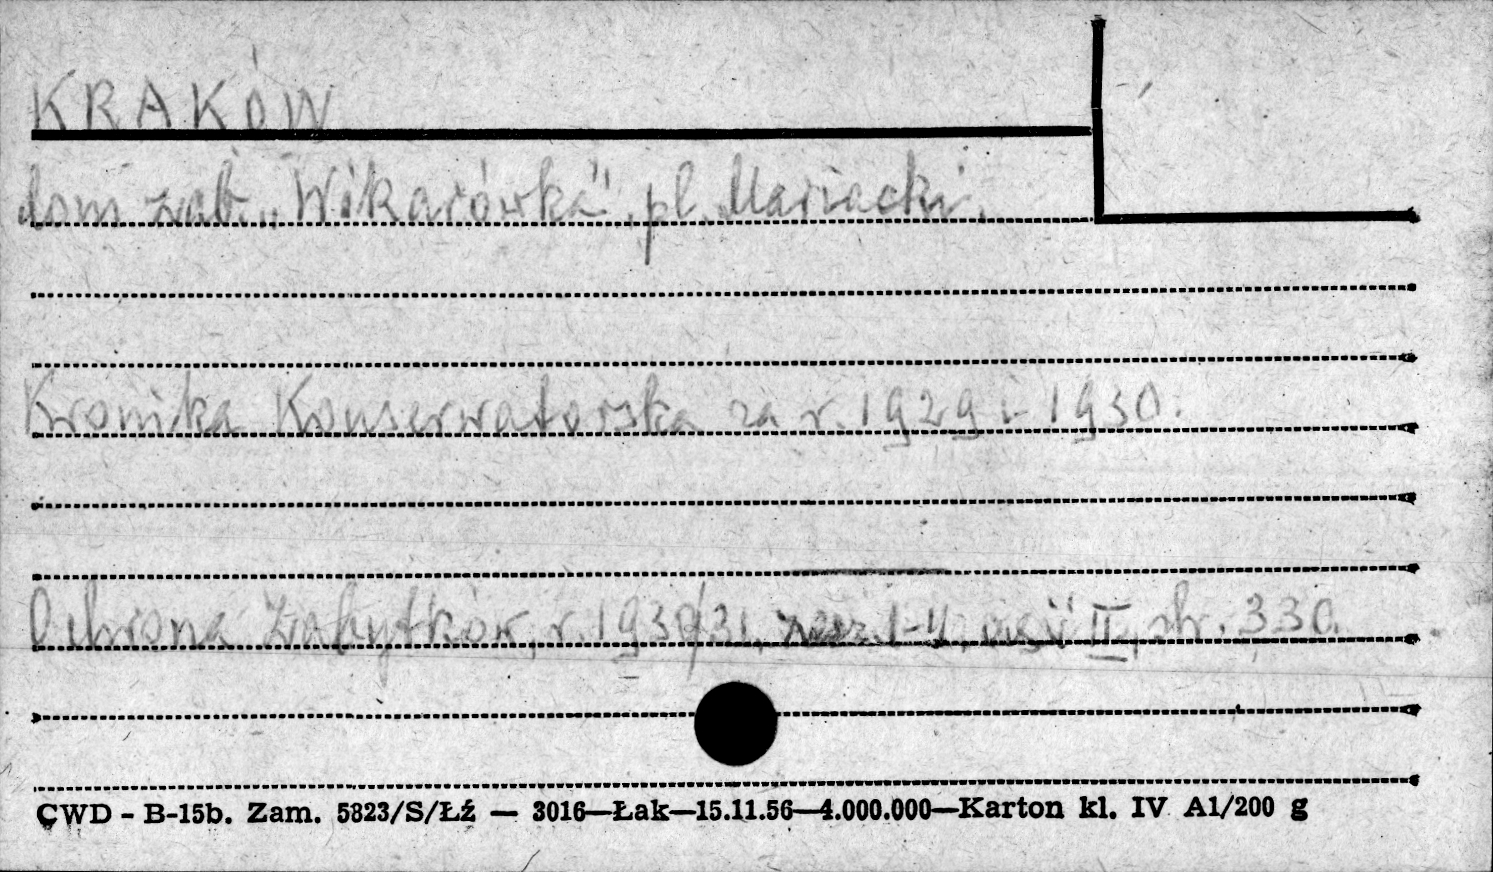 KRAKÓW
dom zab. „Wikarówka" pl. Mariacki.
Kronika Konserwatorska za r. 1929 i 1930.
Ochrona Zabytków, r. 1930/31, zesz. 1-4, część II, str. 330.
CWD - B-15b. Zam. 5823/S/Łź — 3016—Łak—15.11.56—4.000.000—Karton kl. IV A1/200 g